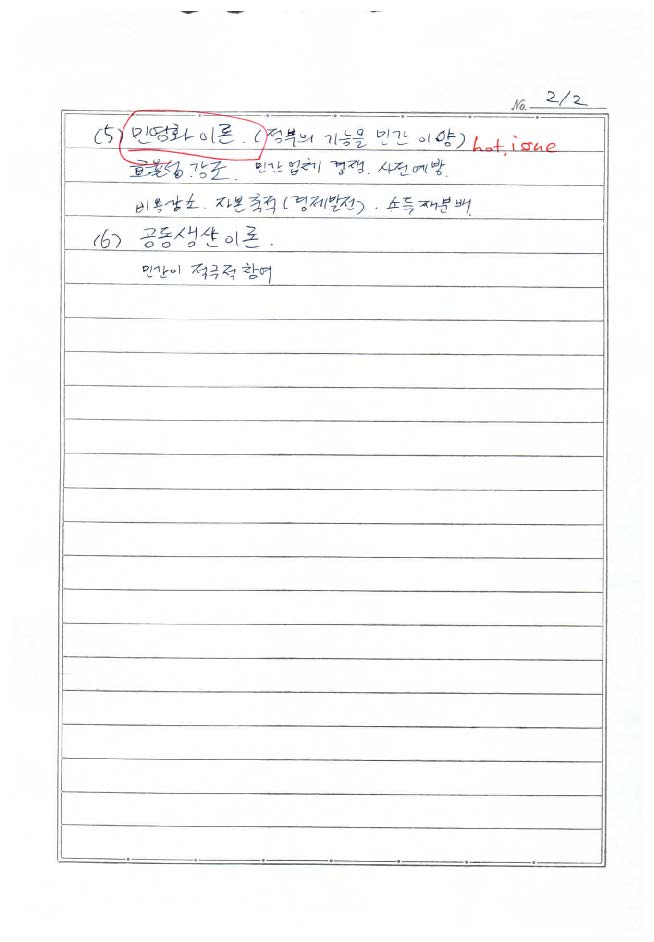 No. 2/2
(5) 민영화 이론. (정부의 기능을 민간 이양) hot issue
효율성 강조. 민간 업체 경쟁. 사전예방.
비용상소. 자본축적(경제발전). 소득재분배.
(6) 공동생산이론.
민간이 적극적 참여